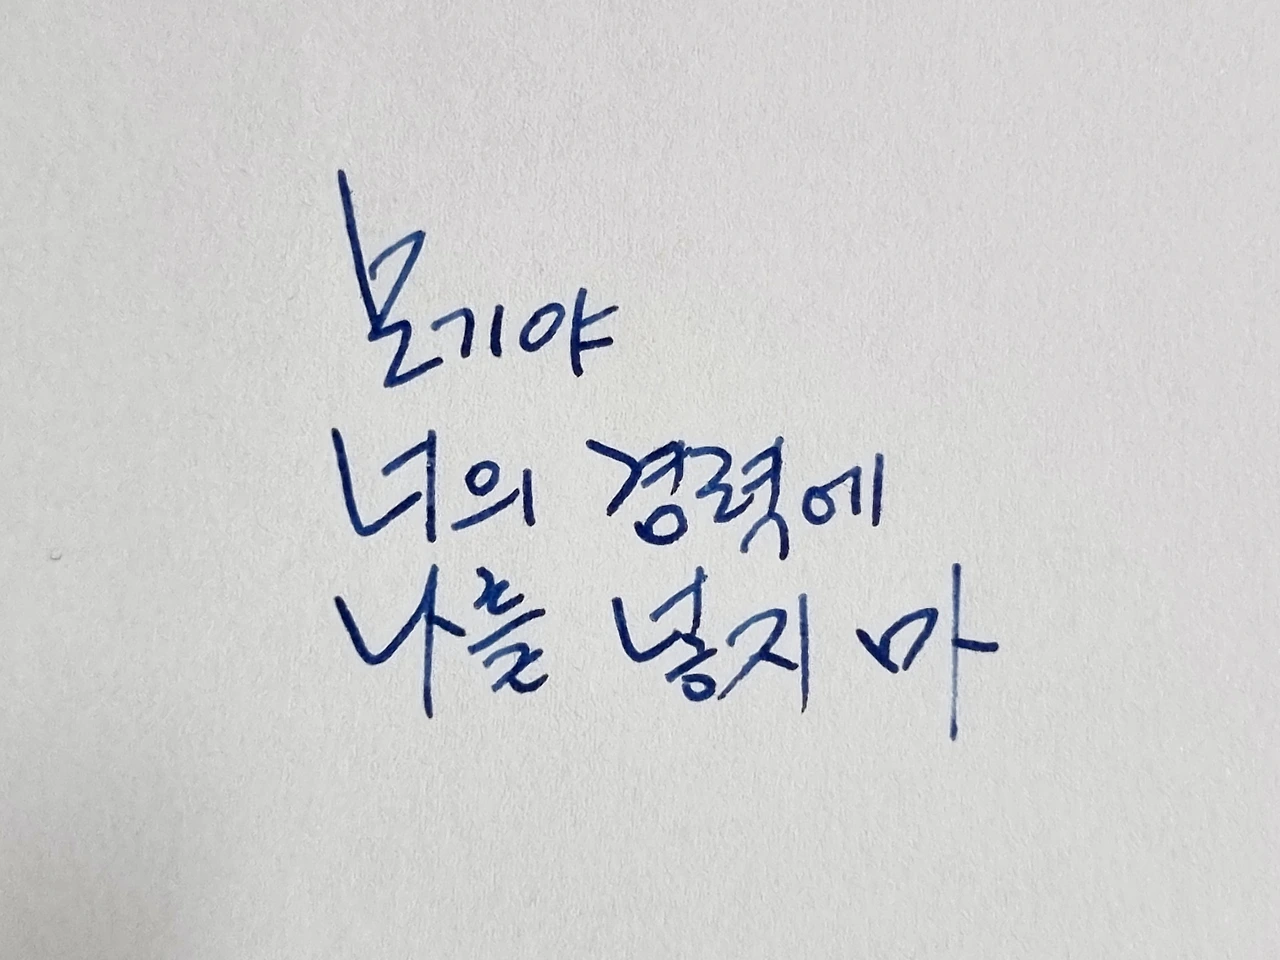 모기야
너의 경력에
나를 넣지 마